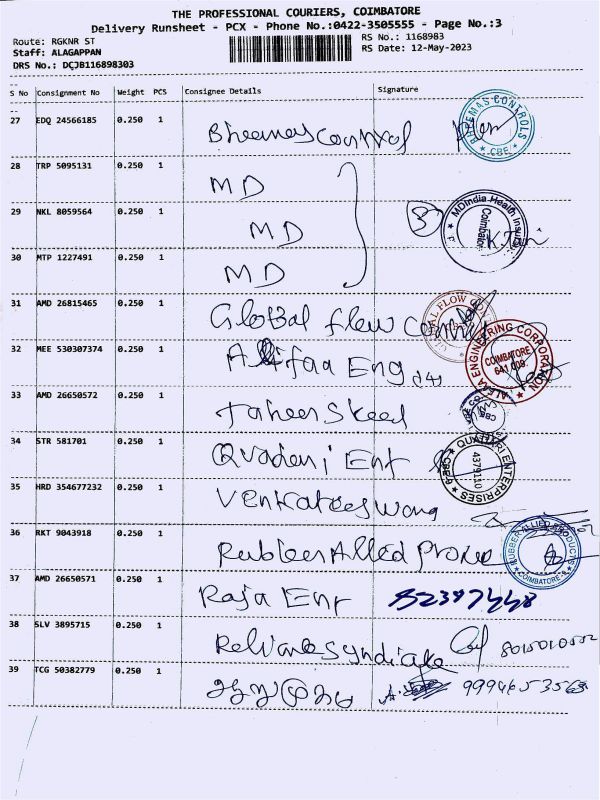 THE PROFESSIONAL COURIERS, COIMBATORE
Delivery Runsheet - PCX - Phone No.:0422-3505555 - Page No.:3
Route: RGKNR ST
RS No.: 1168983
Staff: ALAGAPPAN
RS Date: 12-May-2023
DRS No.: DCJB116898303
S No Consignment No Weight PCS Consignee Details Signature
27 EDQ 24566185 0.250 1 Bheemas Control
BHEEMAS CONTROLS * CBE *
28 TRP 5095131 0.250 1 MD
29 NKL 8059564 0.250 1 MD 3
MDIndia Health Insu Coimbatore
30 MTP 1227491 0.250 1 MD
31 AMD 26815465 0.250 1 Global flow
32 MEE 530307374 0.250 1 Alifaa Eng
ENGINEERING CORPORATION COIMBATORE 641 009.
33 AMD 26650572 0.250 1 Taher Steel
CBE
34 STR 581701 0.250 1 Quaderi Ent
ENTERPRISES * CBE-9 * 4379110
35 HRD 354677232 0.250 1 Venkateeswara
36 RKT 9043918 0.250 1 Rubber Allied
RUBBER ALLIED PRODUCTS * COIMBATORE-9 *
37 AMD 26650571 0.250 1 Raja Ent
38 SLV 3895715 0.250 1 Reliance Syndicate
39 TCG 50382779 0.250 1